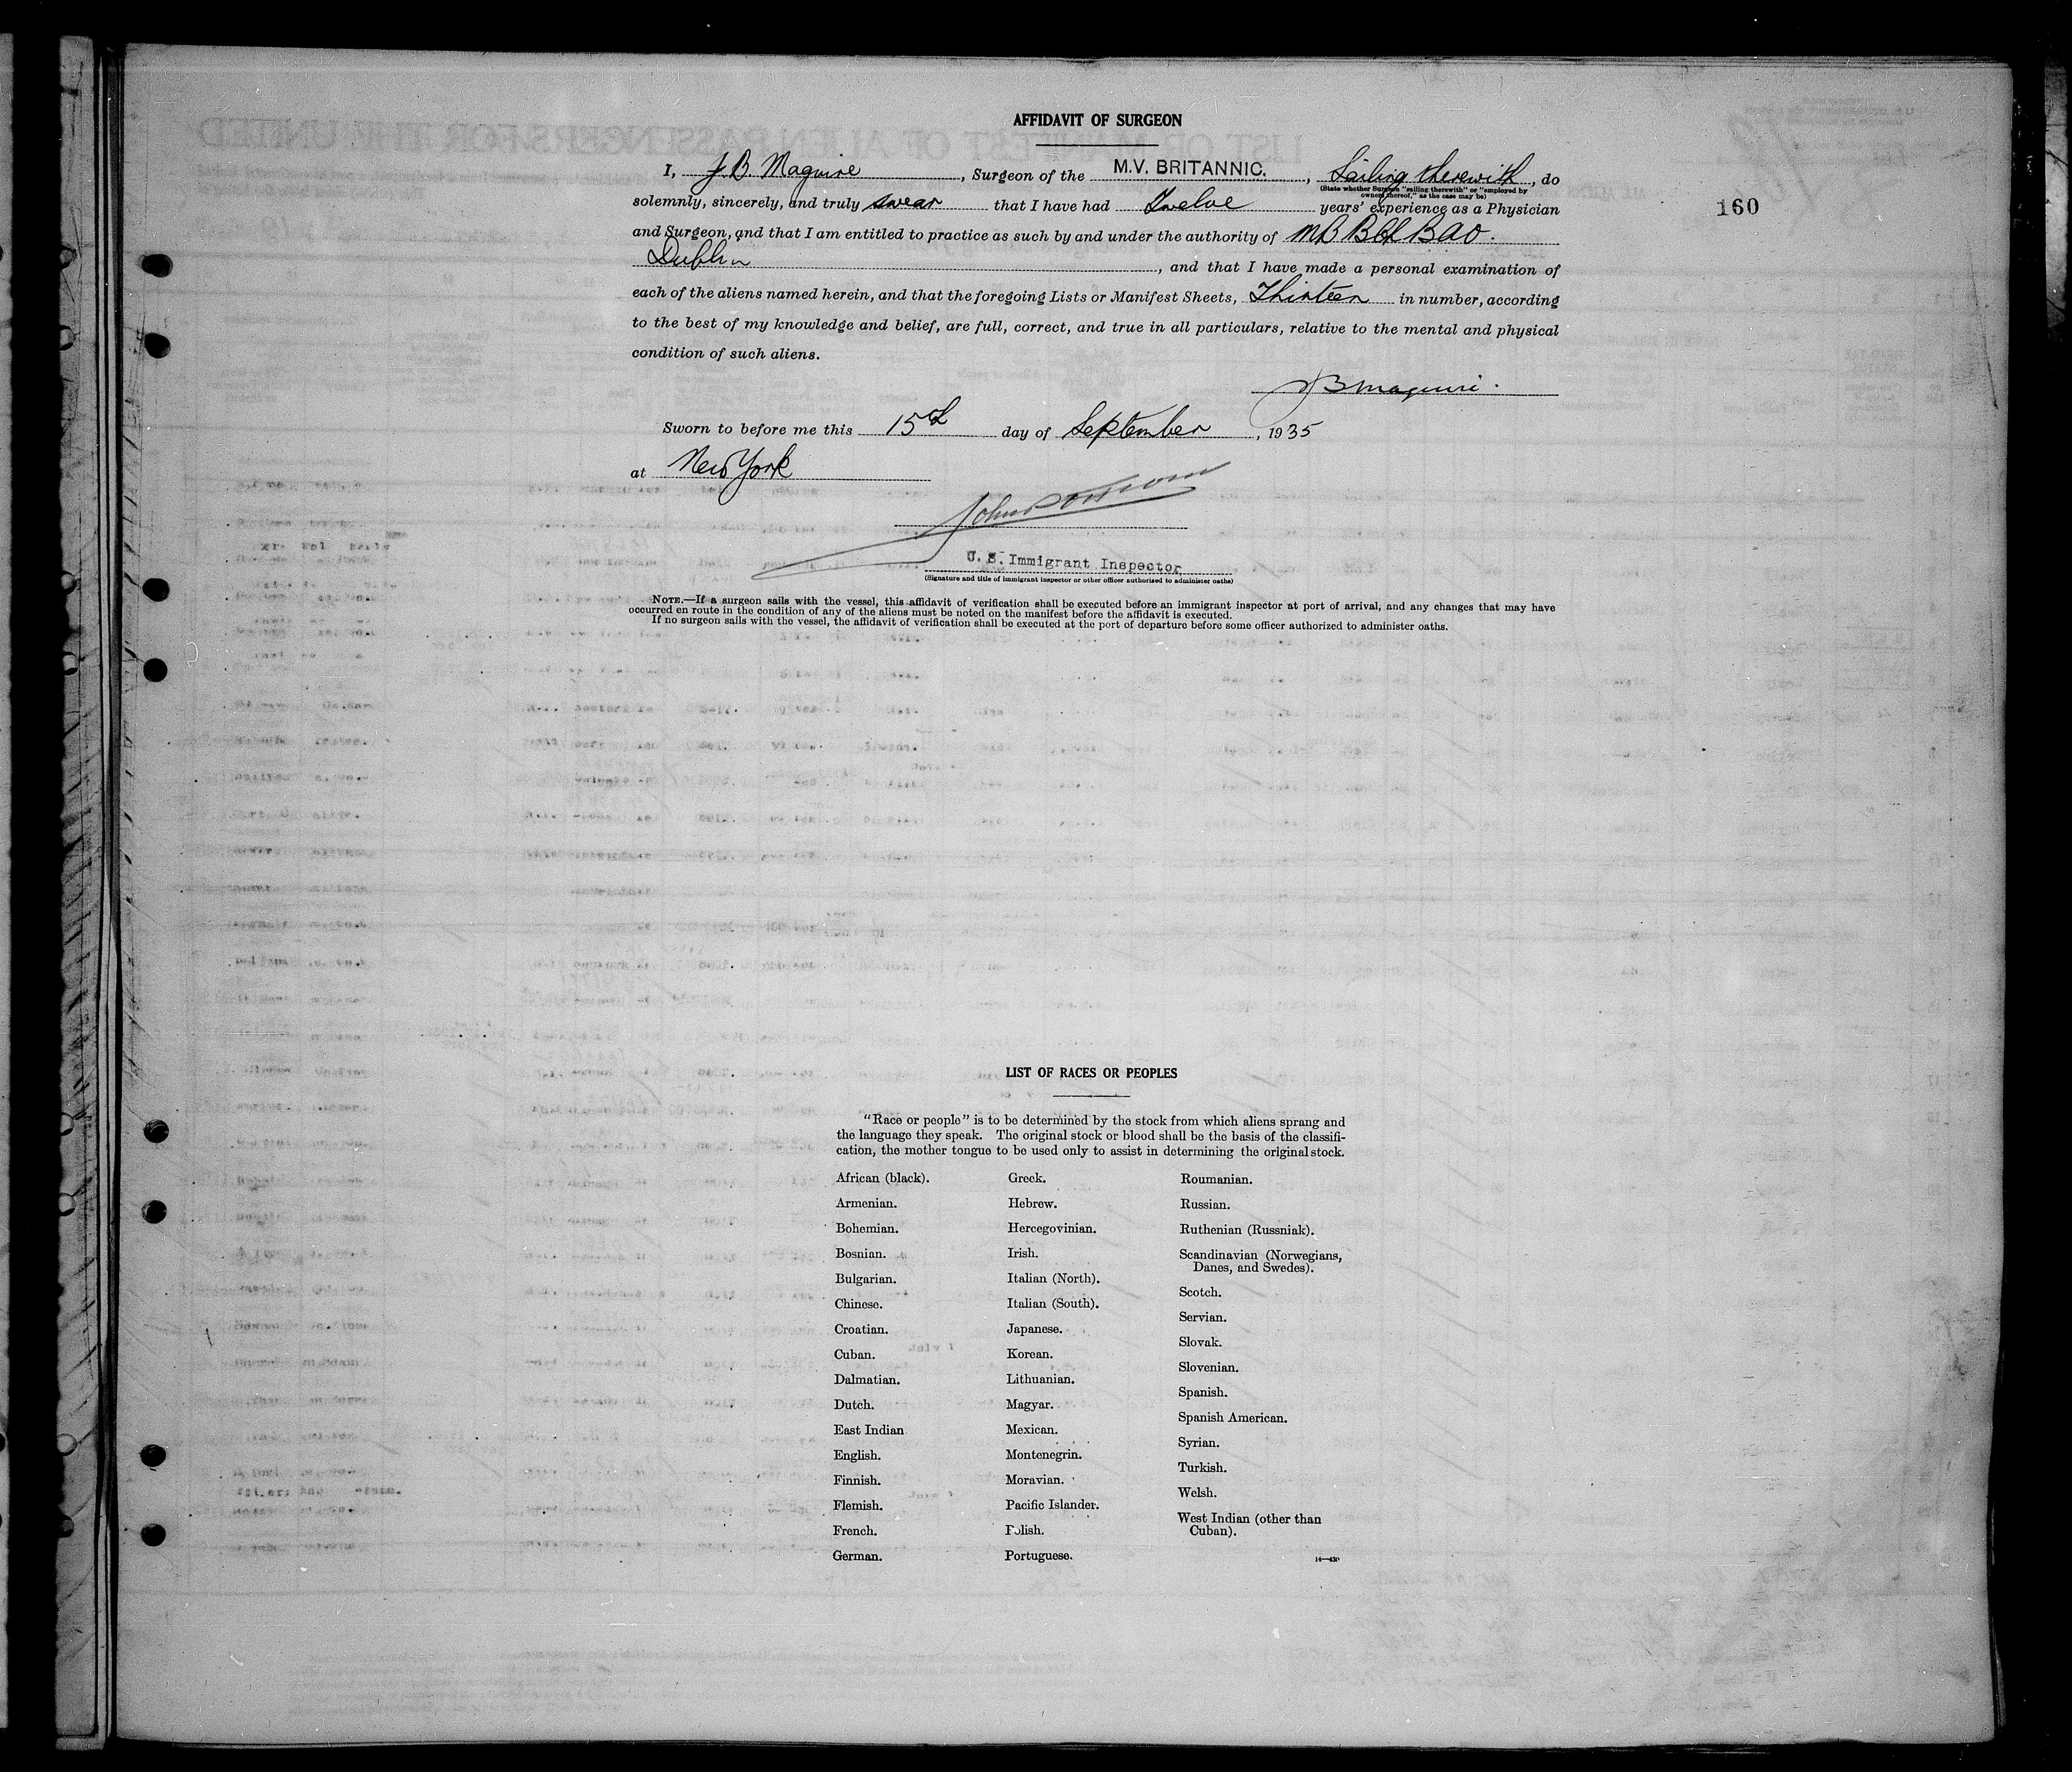 AFFIDAVIT OF SURGEON
I, J. B. Maguire, Surgeon of the M.V. BRITANNIC., Sailing therewith, do
(State whether Surgeon "sailing therewith" or "employed by
owners thereof," as the case may be)
solemnly, sincerely, and truly swear that I have had Twelve years' experience as a Physician
and Surgeon, and that I am entitled to practice as such by and under the authority of MB BCh BAO.
Dublin, and that I have made a personal examination of
each of the aliens named herein, and that the foregoing Lists or Manifest Sheets, Thirteen in number, according
to the best of my knowledge and belief, are full, correct, and true in all particulars, relative to the mental and physical
condition of such aliens.
JB Maguire.
Sworn to before me this 15th day of September, 1935
at New York
160
U. S. Immigrant Inspector
(Signature and title of immigrant inspector or other officer authorized to administer oaths)
NOTE.—If a surgeon sails with the vessel, this affidavit of verification shall be executed before an immigrant inspector at port of arrival, and any changes that may have
occurred en route in the condition of any of the aliens must be noted on the manifest before the affidavit is executed.
If no surgeon sails with the vessel, the affidavit of verification shall be executed at the port of departure before some officer authorized to administer oaths.
LIST OF RACES OR PEOPLES
"Race or people" is to be determined by the stock from which aliens sprang and
the language they speak. The original stock or blood shall be the basis of the classifi-
cation, the mother tongue to be used only to assist in determining the original stock.
African (black).
Armenian.
Bohemian.
Bosnian.
Bulgarian.
Chinese.
Croatian.
Cuban.
Dalmatian.
Dutch.
East Indian
English.
Finnish.
Flemish.
French.
German.
Greek.
Hebrew.
Hercegovinian.
Irish.
Italian (North).
Italian (South).
Japanese.
Korean.
Lithuanian.
Magyar.
Mexican.
Montenegrin.
Moravian.
Pacific Islander.
Polish.
Portuguese.
Roumanian.
Russian.
Ruthenian (Russniak).
Scandinavian (Norwegians,
Danes, and Swedes).
Scotch.
Servian.
Slovak.
Slovenian.
Spanish.
Spanish American.
Syrian.
Turkish.
Welsh.
West Indian (other than
Cuban).